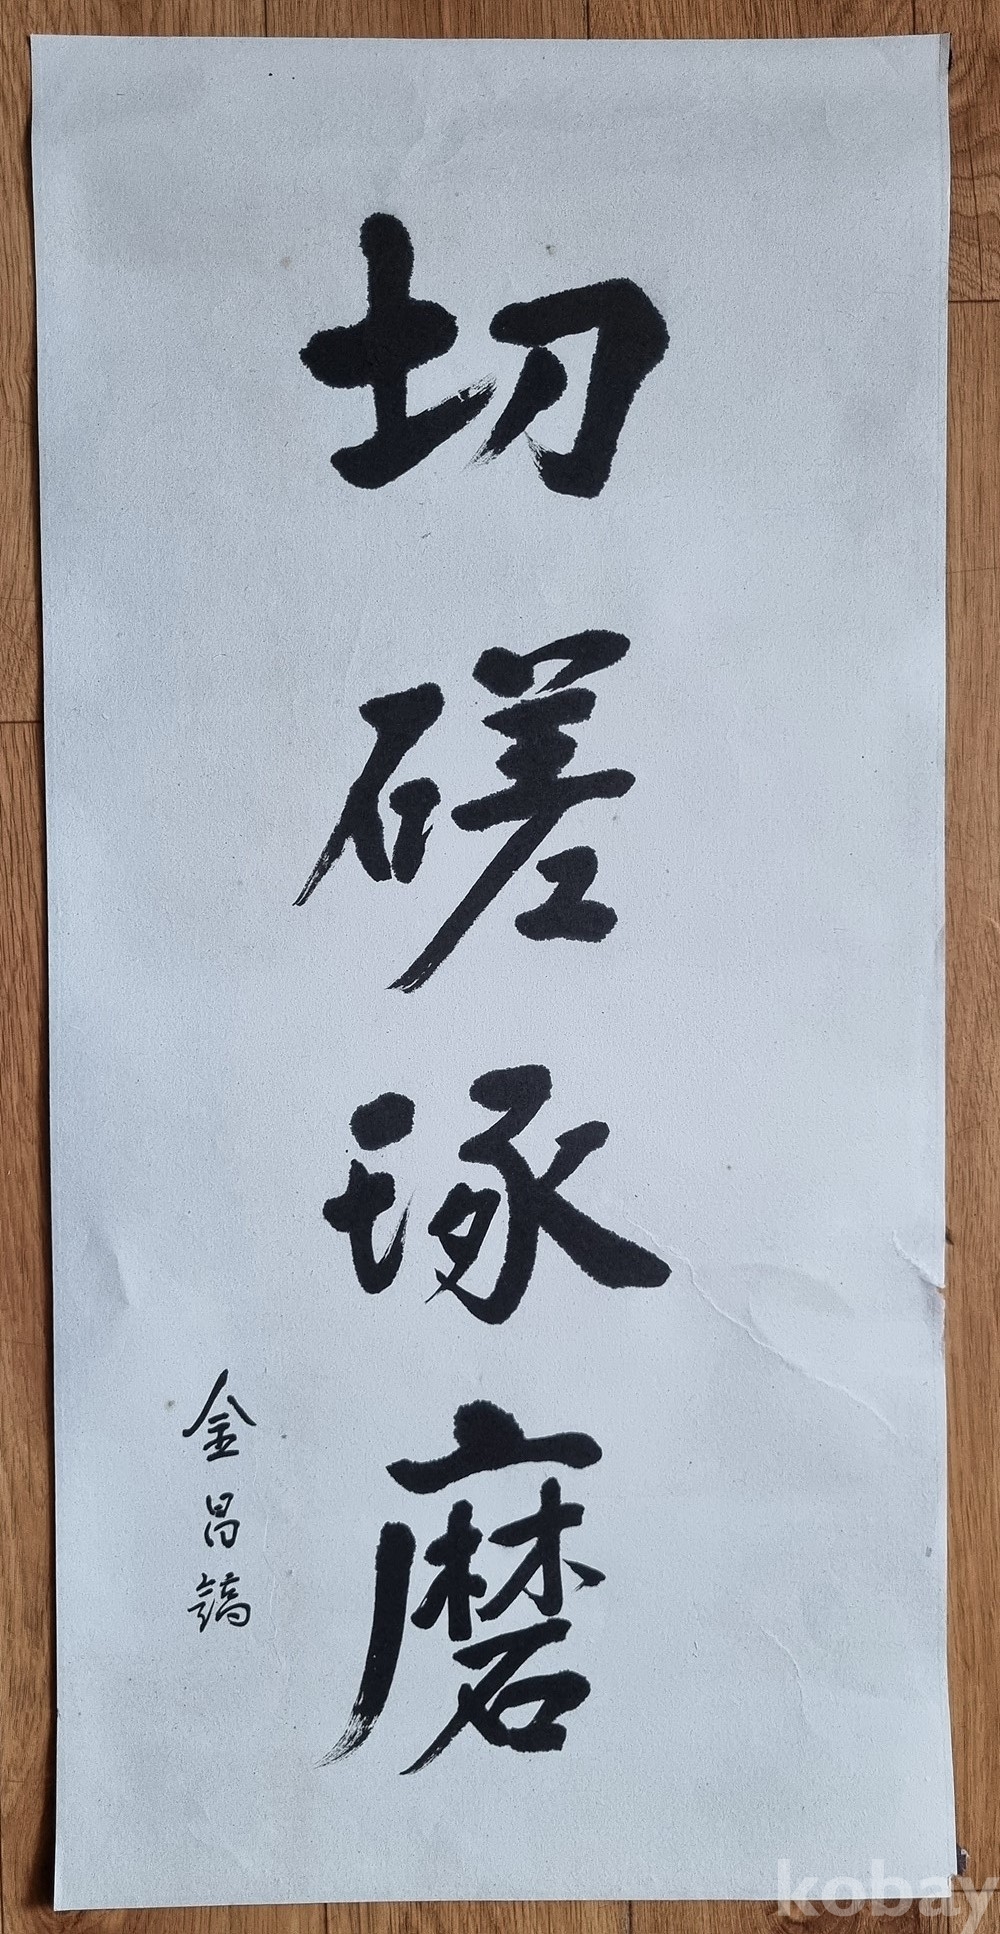 切磋琢磨
金昌鎬
kobay